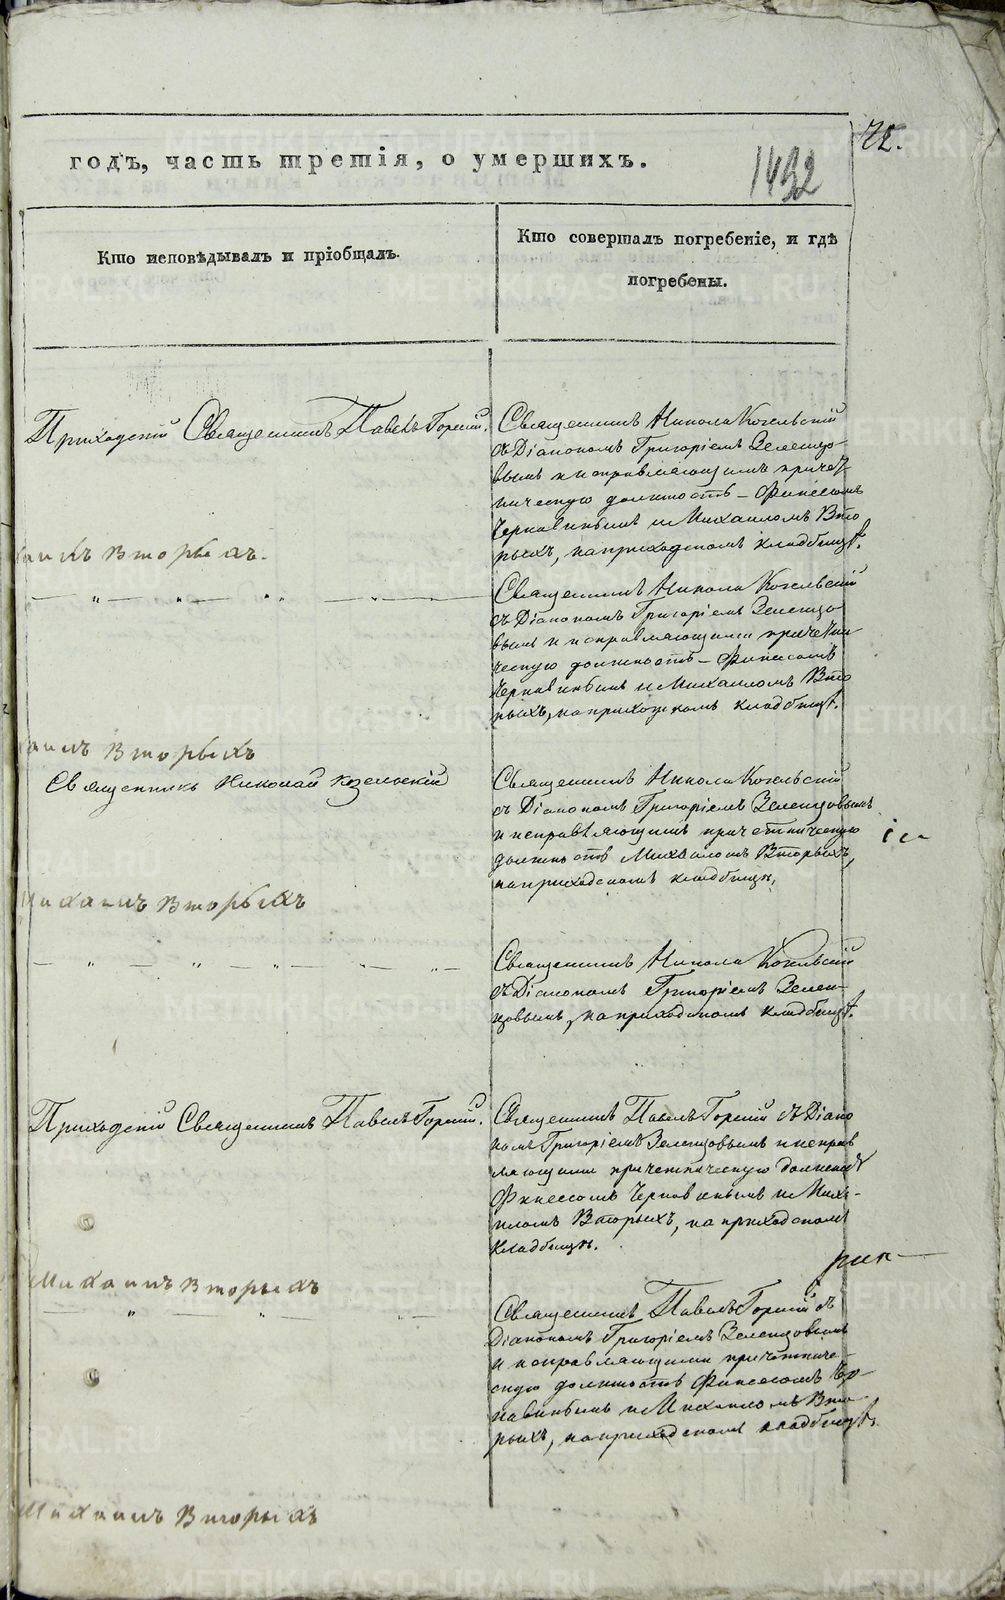 72.
годъ, часть третія, о умершихъ.
1432
Кто исповѣдывалъ и пріобщалъ.
Кто совершалъ погребеніе, и гдѣ
погребены.
Приходскій Священникъ Павелъ Горный.
Священникъ Никола Козельскій
съ Діакономъ Григоріемъ Зеленцо-
вымъ и исправляющимъ причет-
ническую должность – Финесомъ
Чернавинымъ и Михаиломъ Вто
рыхъ, на приходскомъ кладбищѣ.
Вторыхъ.
Священникъ Никола Козельскій
съ Діакономъ Григоріемъ Зеленцо
вымъ и исправляющими причетни
ческую должность – Финесомъ
Чернавинымъ и Михаиломъ Вто
рыхъ, на приходскомъ кладбищѣ.
Вторыхъ
Священникъ Николай Козельскій
Священникъ Никола Козельскій
съ Діакономъ Григоріемъ Зеленцовымъ
и исправляющимъ причетническую
должность Михаиломъ Вторыхъ,
на приходскомъ кладбищѣ.
Михаилъ Вторыхъ
Священникъ Никола Козельскій
съ Діакономъ Григоріемъ Зелен-
цовымъ, на приходскомъ кладбищѣ.
Приходскій Священникъ Павелъ Горный.
Священникъ Павелъ Горный съ Діако
номъ Григоріемъ Зеленцовымъ и исправ
ляющими причетническую должность
Финессомъ Чернавинымъ и Миха-
иломъ Вторыхъ, на приходскомъ
кладбищѣ.
Михаилъ Вторыхъ
Священникъ Павелъ Горный съ
Діакономъ Григоріемъ Зеленцовымъ
и исправляющими причетниче-
скую должность Финесомъ Чер-
навинымъ и Михаиломъ Вто-
рыхъ, на приходскомъ кладбищѣ.
Михаилъ Вторыхъ
METRIKI.GASO-URAL.RU